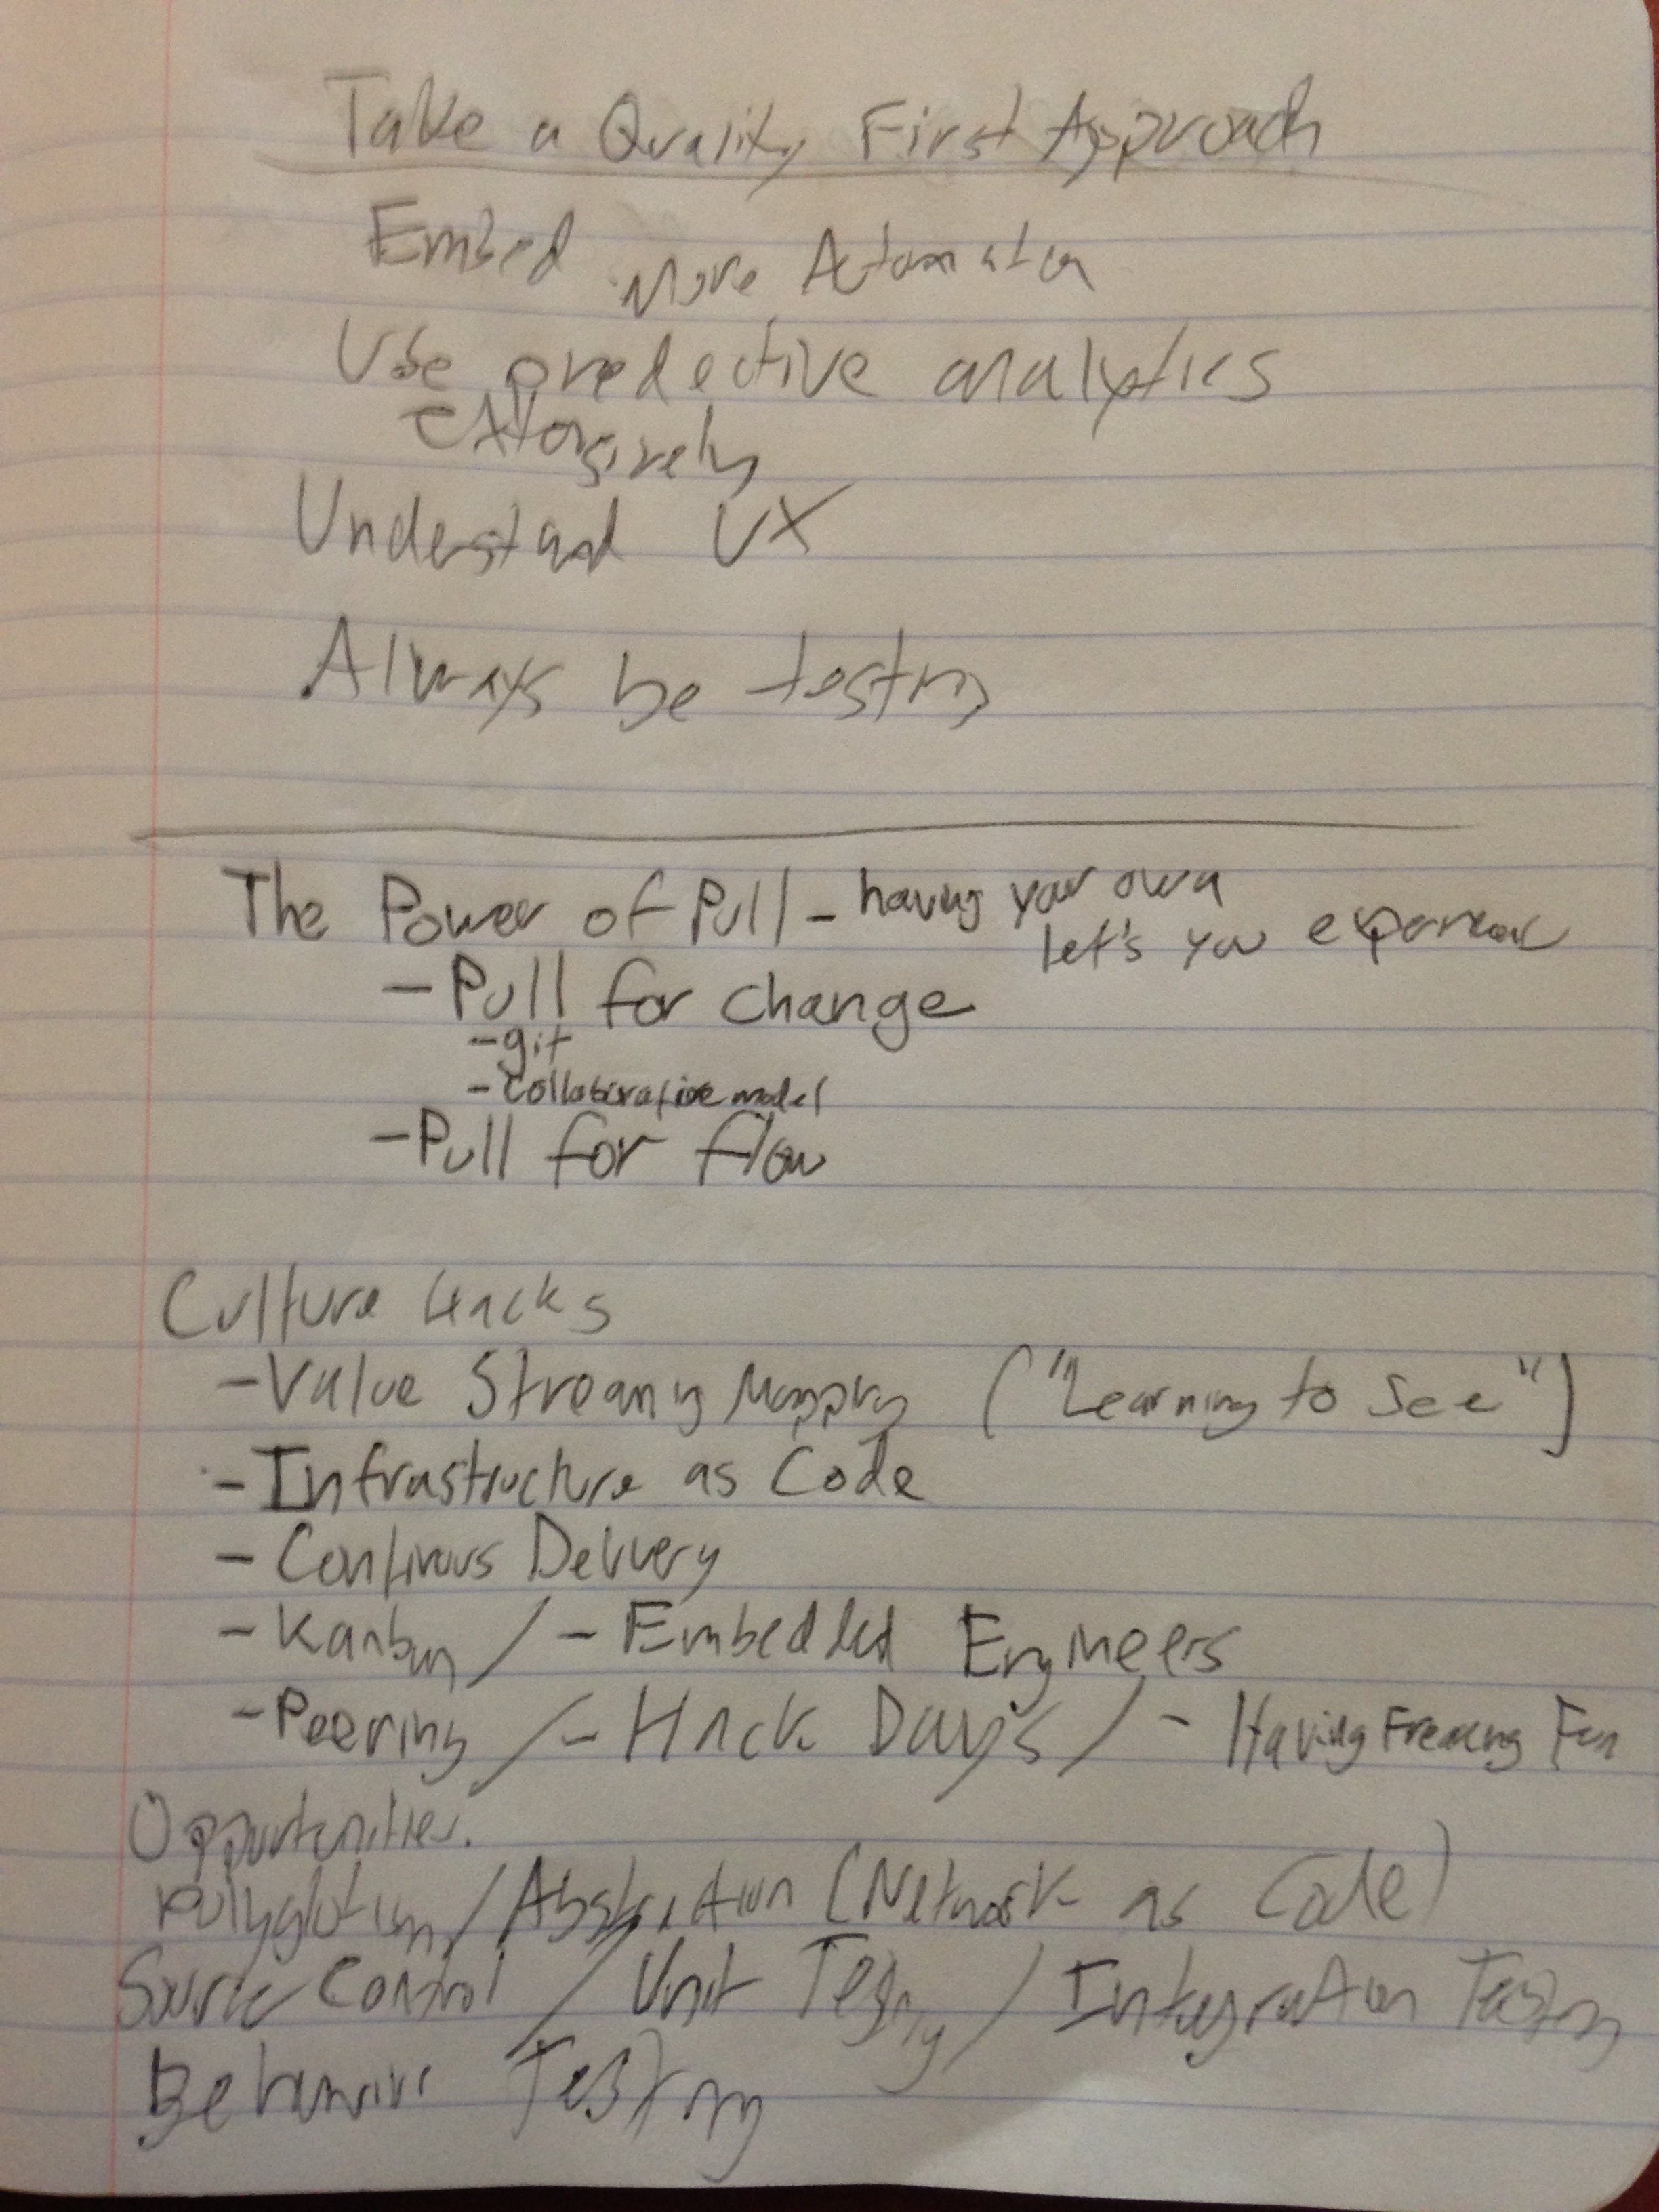 Take a Quality First Approach
Embed More Automation
Use predective analytics
extensively
Understand UX
Always be testing
The Power of Pull - having your own
let's you experience
- Pull for change
- git
- Collaborative model
- Pull for flow
Culture Hacks
- Value Streaming Mapping ("Learning to See")
- Infrastructure as Code
- Continous Delivery
- Kanban / - Embedded Engineers
- Peering / - Hack Days / - Having Freaking Fun
Opportunities.
Pollyglotism / Abstraction (Network as Code)
Source Control / Unit Testing / Integration Testing
Behavior Testing